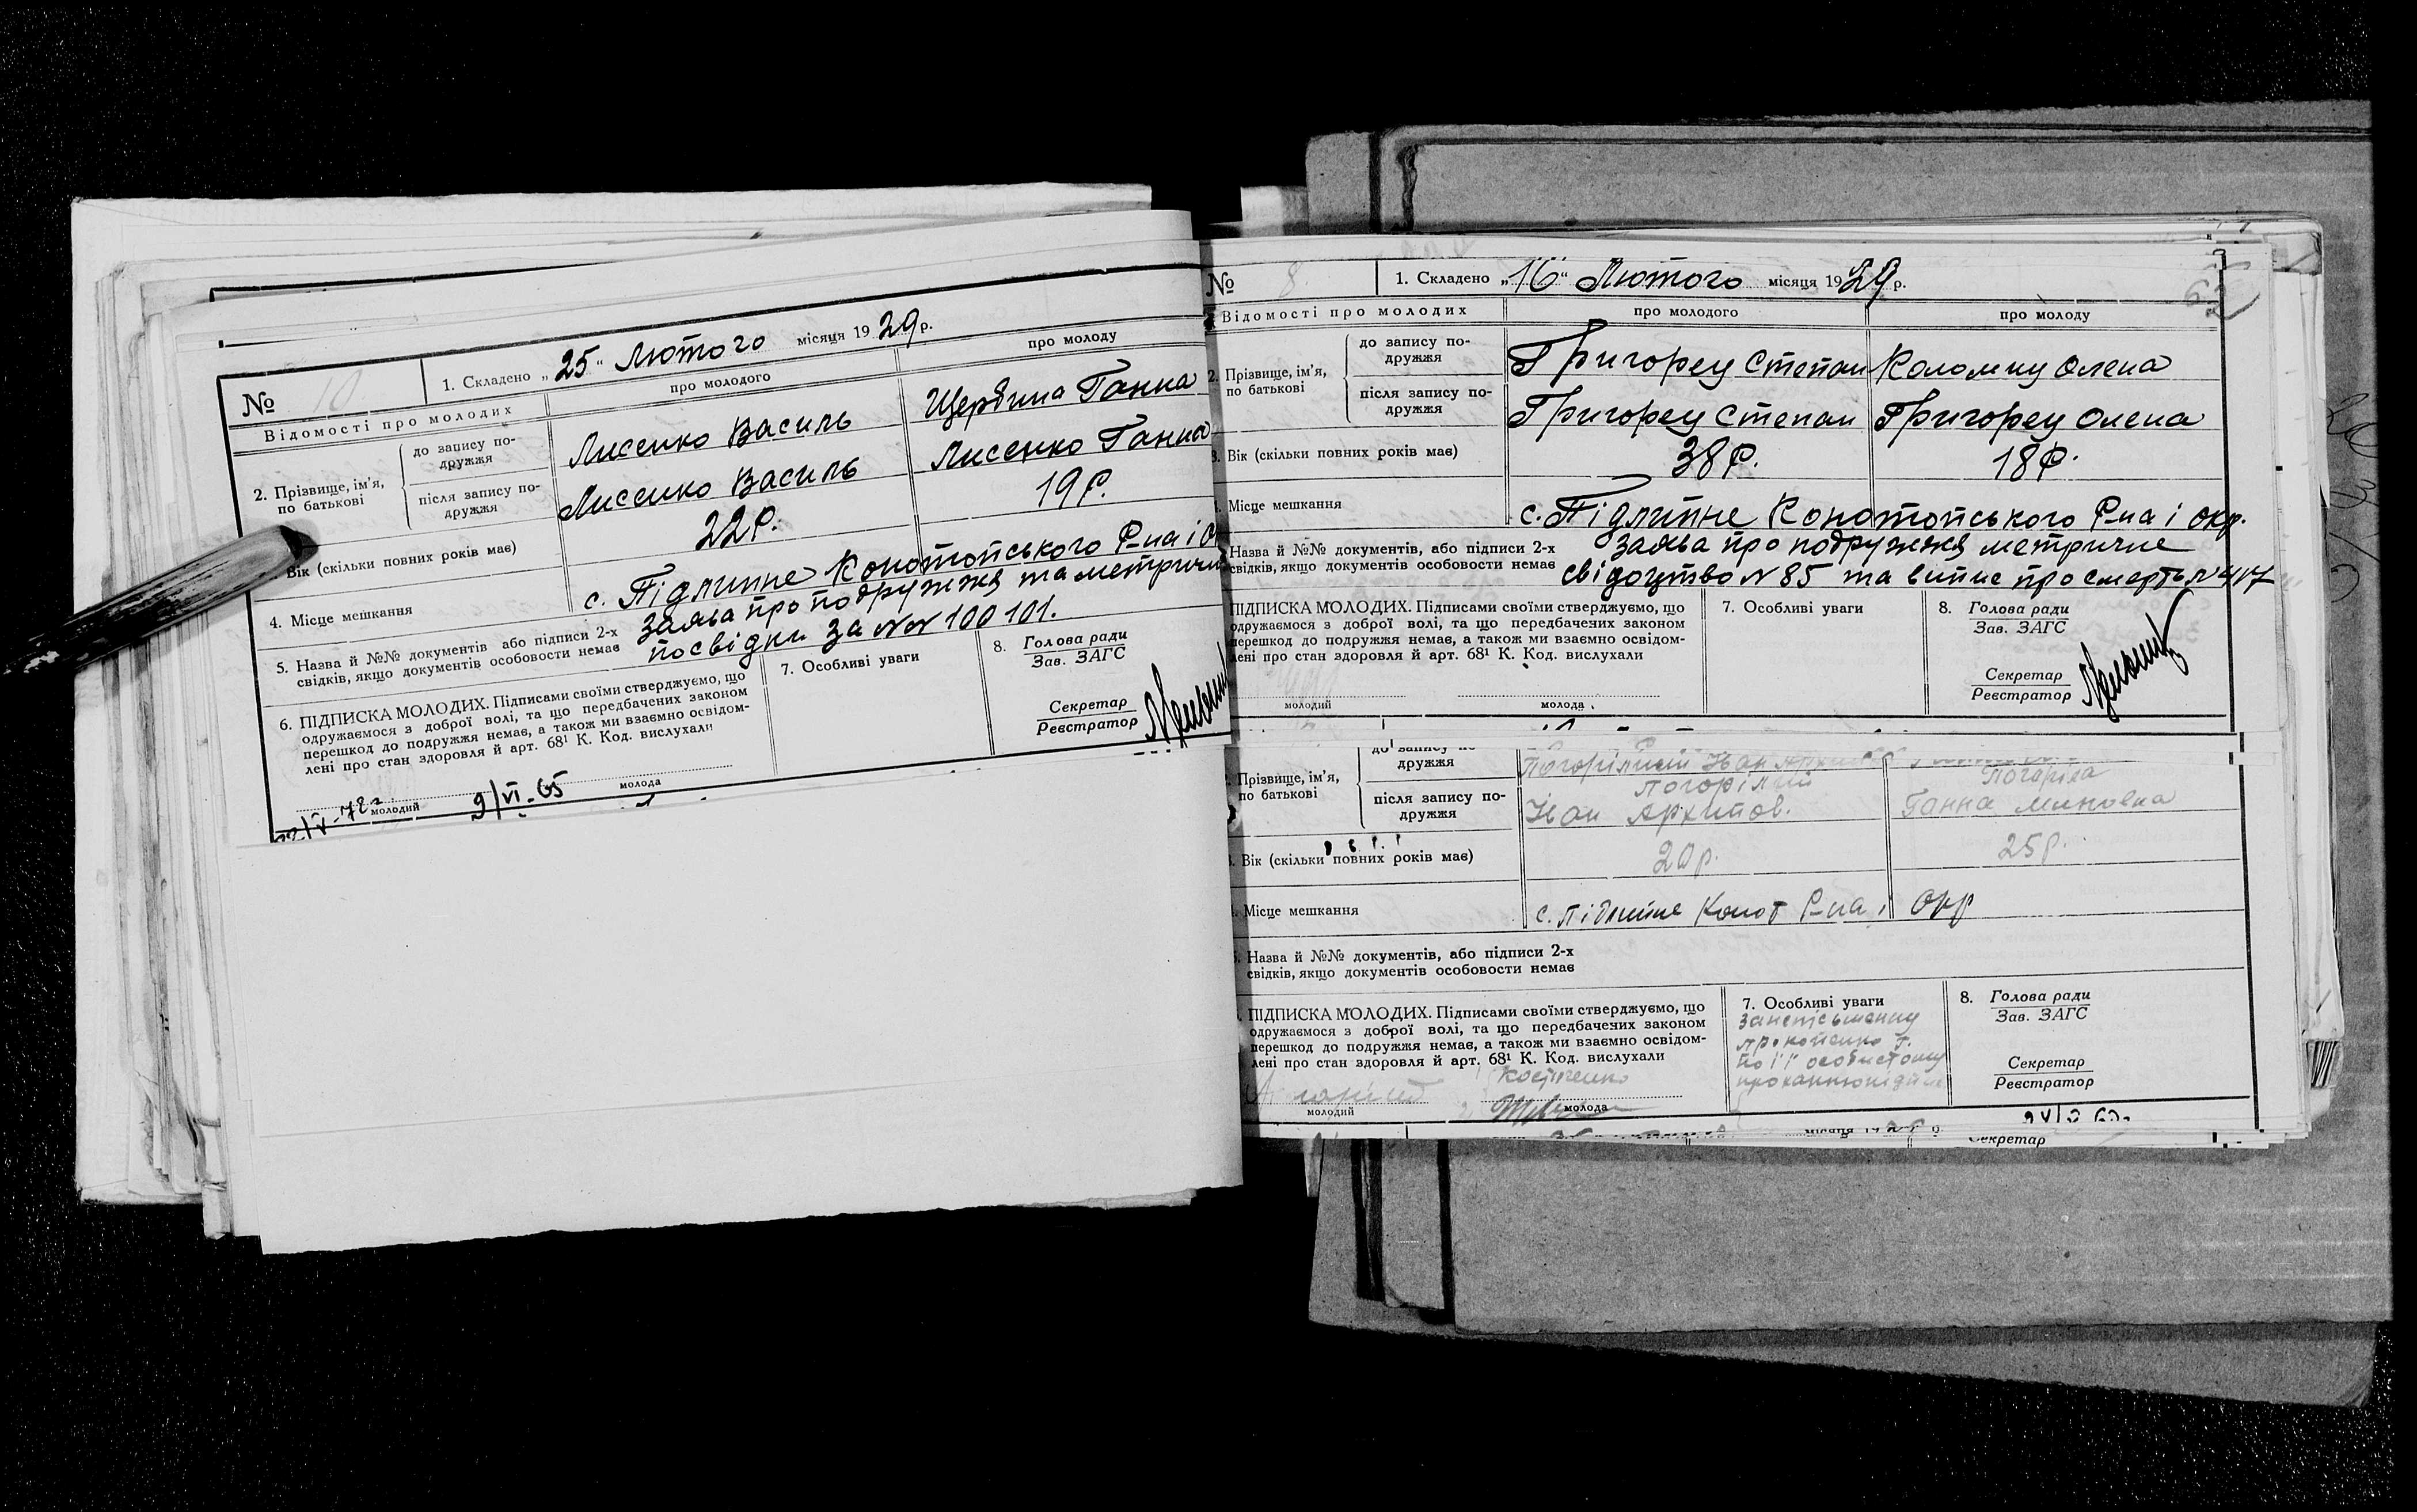 № 10
1. Складено „25“ Лютого місяця 1929 р.
Відомості про молодих
про молодого
про молоду
2. Прізвище, ім’я, по батькові
до запису по-
дружжя
Лисенко Василь
Щербина Ганна
після запису по-
дружжя
Лисенко Василь
Лисенко Ганна
Вік (скільки повних років має)
22 р.
19 р.
4. Місце мешкання
с. Підлипне Конотопського Р-на і
5. Назва й №№ документів або підписи 2-х
свідків, якщо документів особовости немає
заява про подружжя та метричні
посвідки за №№ 100 101.
6. ПІДПИСКА МОЛОДИХ. Підписами своїми стверджуємо, що
одружаємося з доброї волі, та що передбачених законом
перешкод до подружжя немає, а також ми взаємно освідом-
лені про стан здоровля й арт. 68¹ К. Код. вислухали
7. Особливі уваги
8. Голова ради
Зав. ЗАГС
Секретар
Реєстратор
молодий
9/VI-65
молода
№ 8.
1. Складено „16“ Лютого місяця 1929 р.
62
Відомості про молодих
про молодого
про молоду
2. Прізвище, ім’я,
по батькові
до запису по-
дружжя
Григорец Степан
Коломиц Олена
після запису по-
дружжя
Григорец Степан
Григорец Олена
Вік (скільки повних років має)
38 р.
18 р.
Місце мешкання
с. Підлипне Конотопського Р-на і окр.
Назва й №№ документів, або підписи 2-х
свідків, якщо документів особовости немає
заява про подружжя метричне
свідоцтво № 85 та випис про смерть №
ПІДПИСКА МОЛОДИХ. Підписами своїми стверджуємо, що
одружаємося з доброї волі, та що передбачених законом
перешкод до подружжя немає, а також ми взаємно освідом-
лені про стан здоровля й арт. 68¹ К. Код. вислухали
7. Особливі уваги
8. Голова ради
Зав. ЗАГС
Секретар
Реєстратор
молодий
молода
дружжя
Іван
Прізвище, ім’я,
по батькові
після запису по-
дружжя
Погорілий
Іван Архипов.
Погоріла
Ганна
Вік (скільки повних років має)
20 р.
25 р.
Місце мешкання
с. Підлипне Конот Р-на і окр
Назва й №№ документів, або підписи 2-х
свідків, якщо документів особовости немає
ПІДПИСКА МОЛОДИХ. Підписами своїми стверджуємо, що
одружаємося з доброї волі, та що передбачених законом
перешкод до подружжя немає, а також ми взаємно освідом-
лені про стан здоровля й арт. 68¹ К. Код. вислухали
7. Особливі уваги
8. Голова ради
Зав. ЗАГС
Секретар
Реєстратор
молодий
молода
Секретар